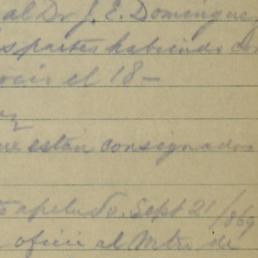 al Dr J. E. Domingue
partes habiendo
el 18—
que están consignados
apelado. Sept 21/869
oficio al Mtro de